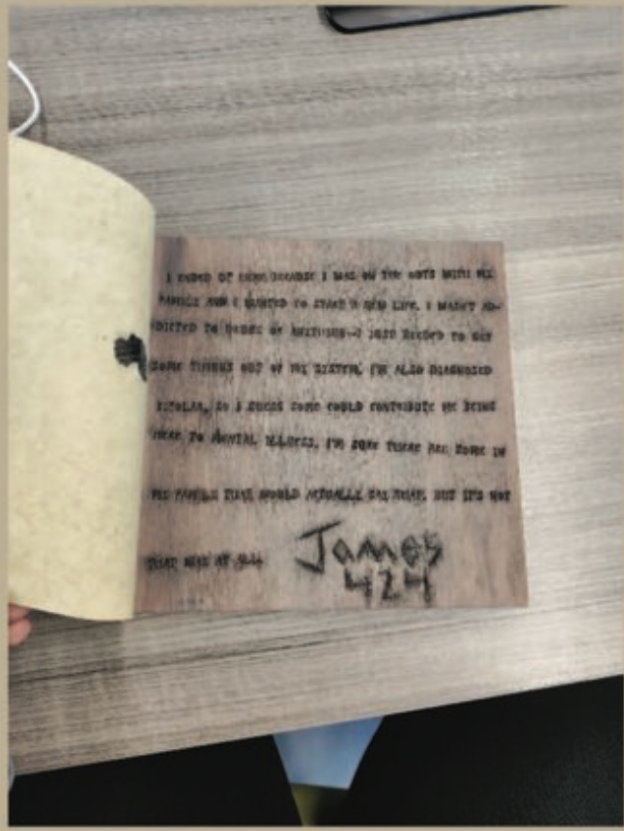 I ENDED UP HERE BECAUSE I WAS ON THE OUTS WITH MY
FAMILY AND I WANTED TO START A NEW LIFE. I WASN'T AD-
DICTED TO DRUGS OR ANYTHING—I JUST NEEDED TO GET
SOME THINGS OUT OF MY SYSTEM. I'M ALSO DIAGNOSED
BIPOLAR, SO I GUESS SOME COULD CONTRIBUTE ME BEING
HERE TO MENTAL ILLNESS. I'M SURE THERE ARE SOME IN
MY FAMILY THAT WOULD ACTUALLY SAY THAT, BUT IT'S NOT
THAT WAY AT ALL.
James
424